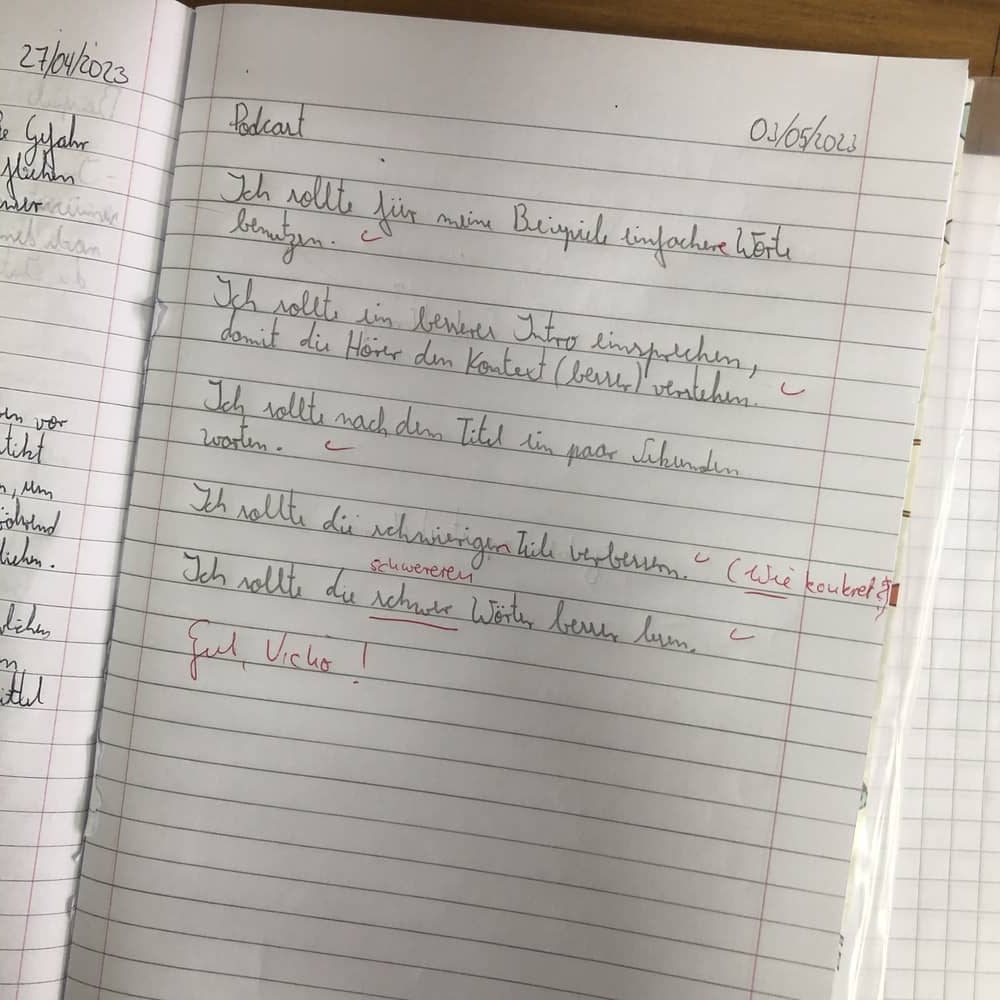 27/04/2023
Gefahr
, um
während
vor
Podcast
03/05/2023
Ich sollte für meine Beispiele einfachere Wörte
benutzen.
Ich sollte ein besseres Intro einsprechen,
damit die Hörer den Kontext (besser) verstehen.
Ich sollte nach dem Titel ein paar Sekunden
warten.
Ich sollte die schwierigen Teile verbessern. (Wie konkret?)
schwereren
Ich sollte die schwer Wörter besser lesen.
Gut, Vicho!